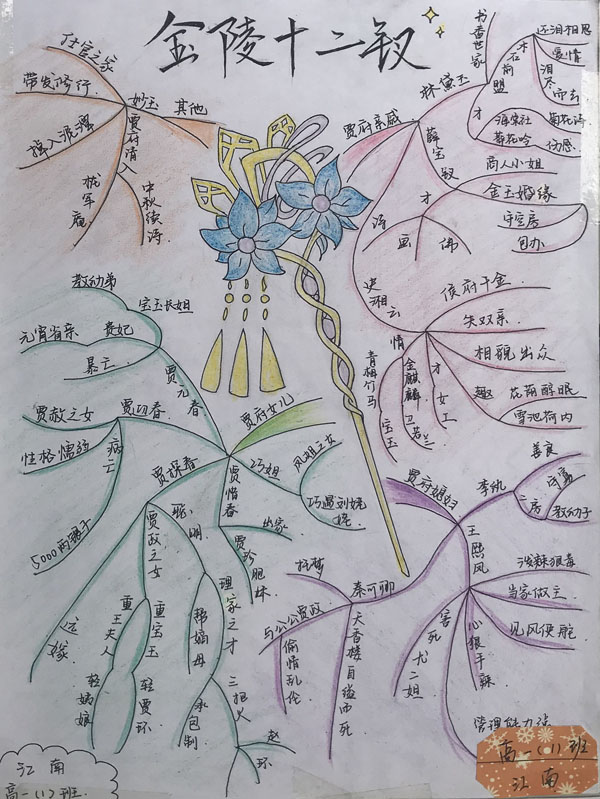 金陵十二钗
仕宦之家
带发修行
妙玉
其他
掉入泥潭
贾府请入
栊翠庵
中秋续诗
书香世家
林黛玉
木石前盟
还泪相思
爱情
泪尽而去
才
海棠社
菊花诗
葬花吟
伤感
贾府亲戚
薛宝钗
商人小姐
金玉婚缘
守空房
包办
才
诗
画
佛
史湘云
侯府千金
失双亲
相貌出众
趣
花荫醉眠
情
青梅竹马
宝玉
金麒麟
卫若兰
才
女工
教幼弟
宝玉长姐
元宵省亲
贵妃
暴亡
贾元春
贾府女儿
贾赦之女
贾迎春
性格懦弱
病亡
贾探春
巧姐
凤姐之女
巧遇刘姥姥
贾惜春
出家
贾珍胞妹
贾政之女
聪明
远嫁
重王夫人
轻姨娘
重宝玉
轻贾环
理家之才
帮嫡母
承包制
三把火
赵
环
贾府媳妇
李纨
善良
守寡
教幼子
王熙凤
泼辣狠毒
当家做主
见风使舵
心狠手辣
害死尤二姐
秦可卿
托梦
与公公贾政
偷情乱伦
天香楼自缢而死
江南
高一(1)班
高一(1)班
江南